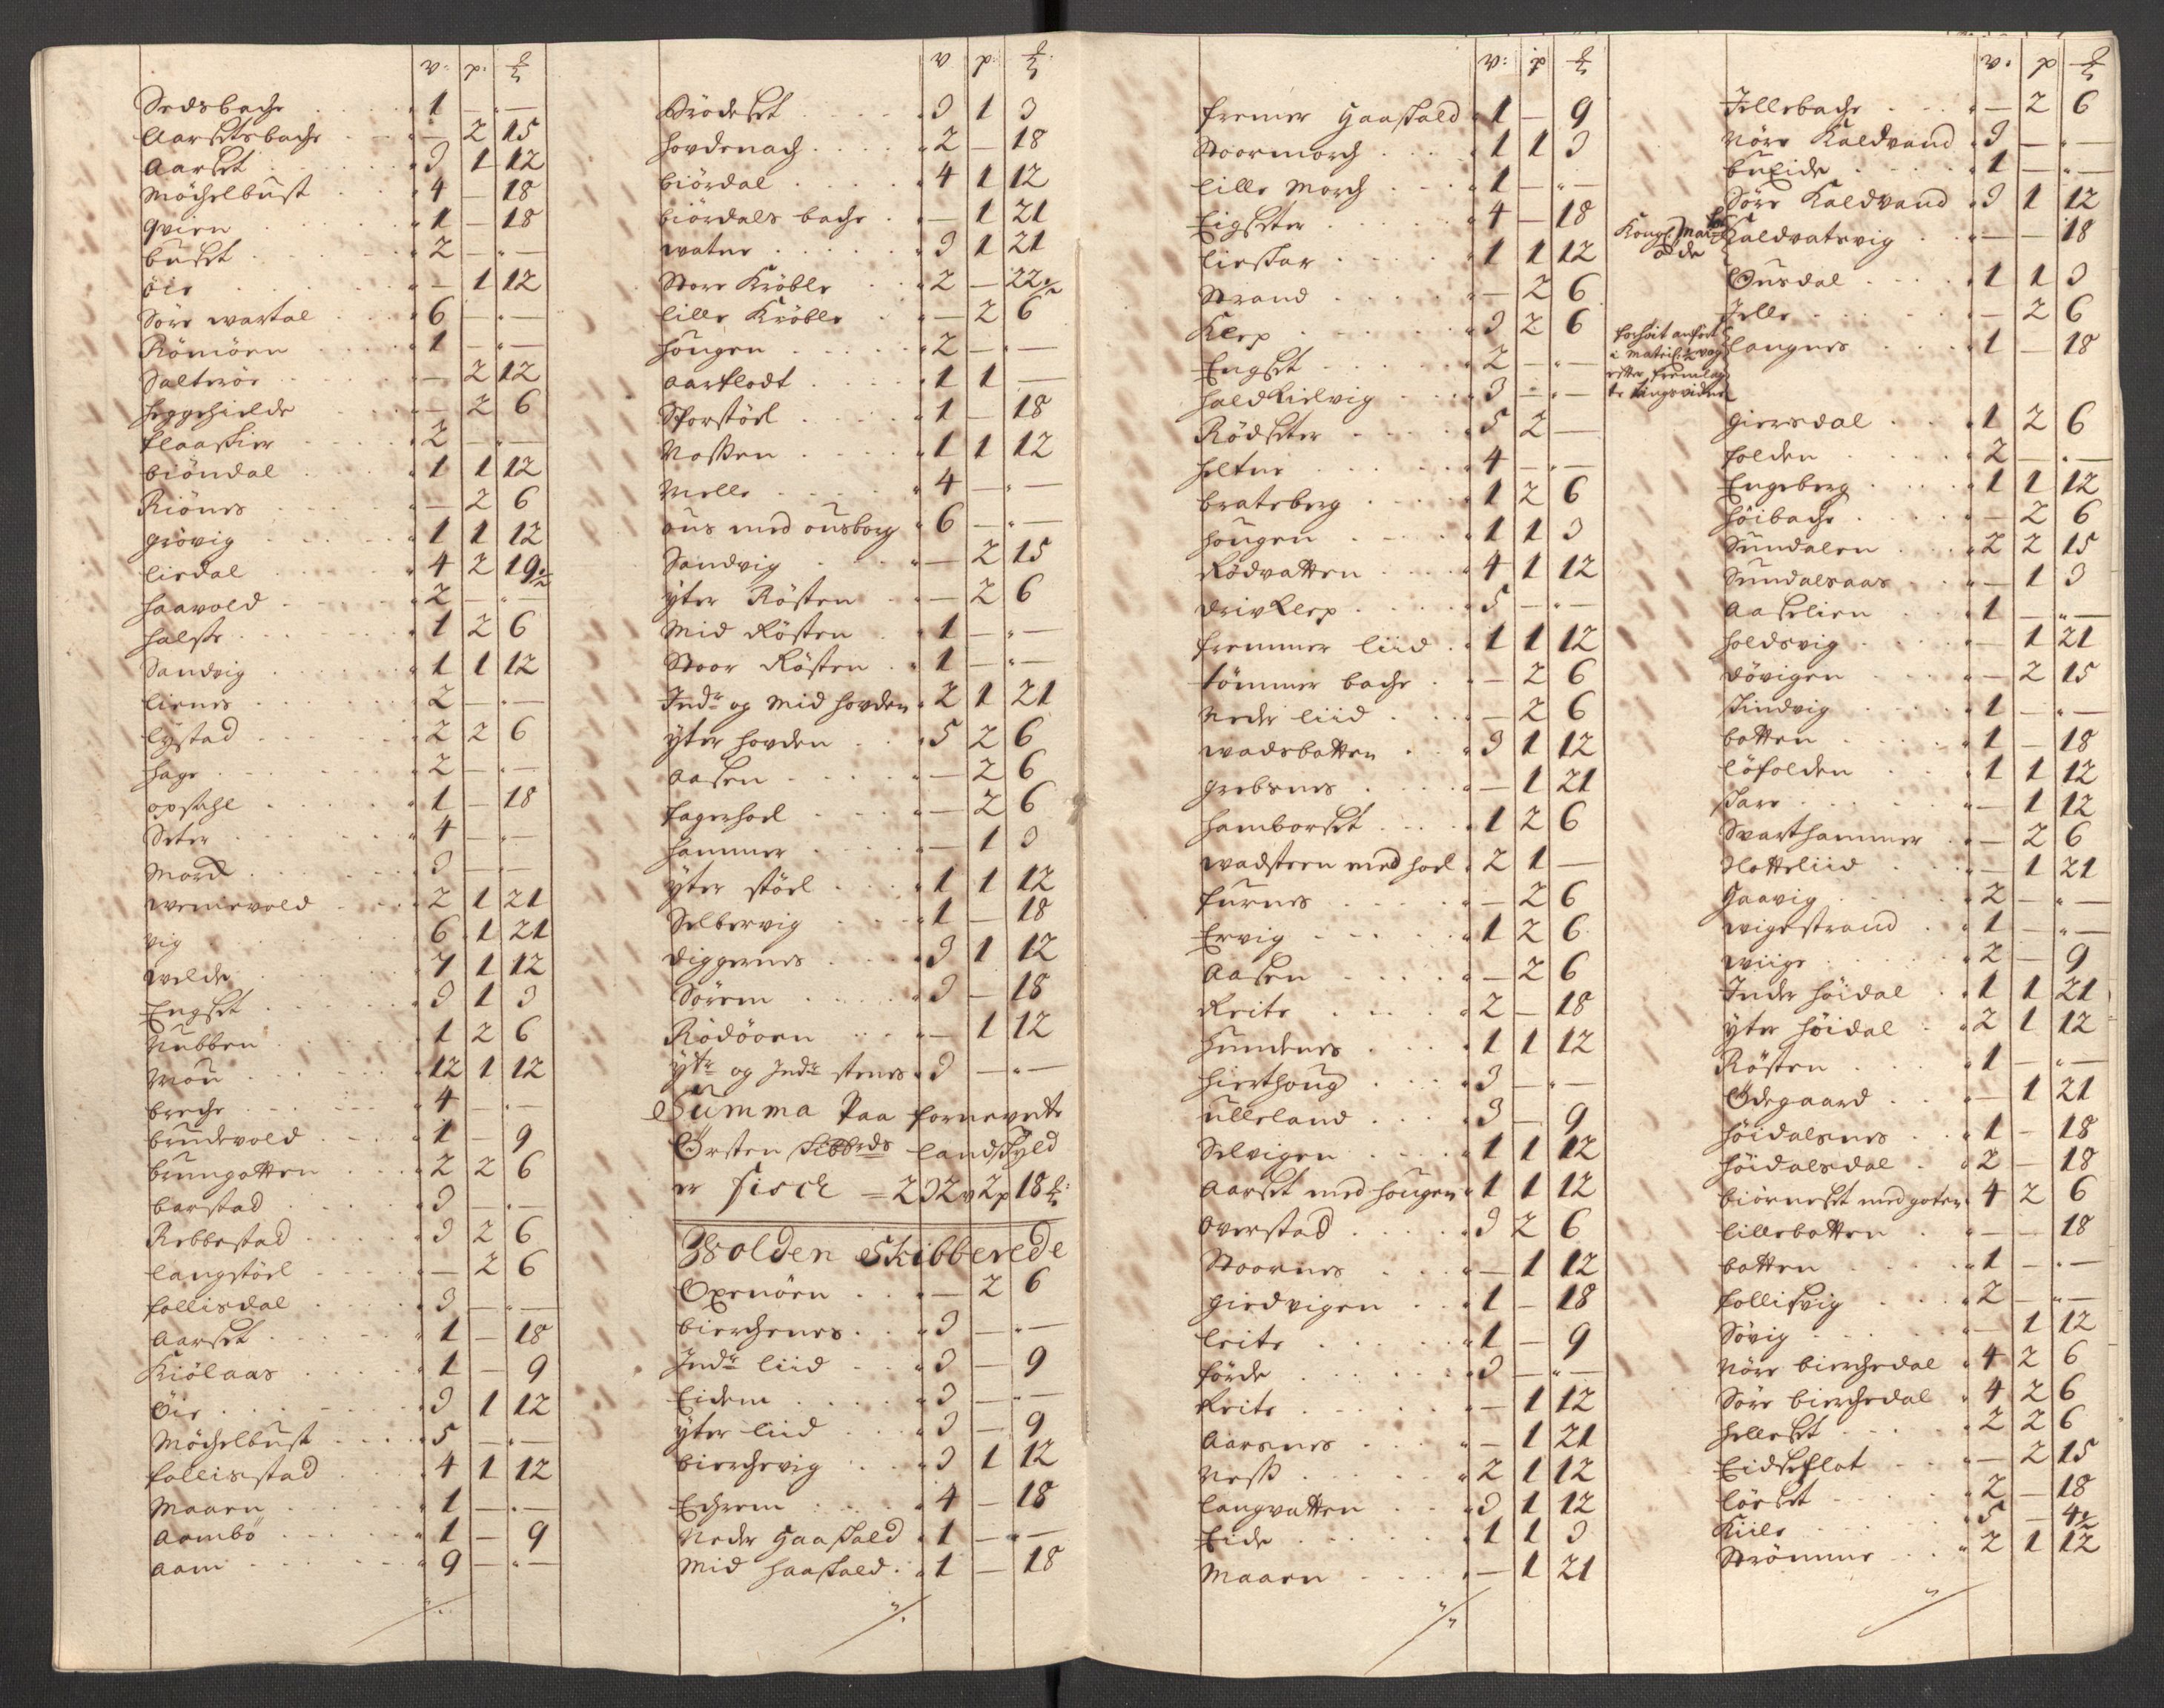 v: p: ℔
Sedsbache 1 – –
Aarsetsbache – 2 15
Aarset 3 1 12
Möchelbust 4 – 18
qvien 1 – 18
buset 2 – –
öie – 1 12
Söre wartal 6 – –
Römöen 1 – –
Saltrör – 2 12
heggehielde – 2 6
flaaskier 2 – –
biöndal 1 1 12
Riönes – 2 6
grövig 1 1 12
liedal 4 2 19½
haavold 2 – –
halse 1 2 6
Sandvig 1 1 12
lienes 2 – –
lystad 2 2 6
hage 2 – –
opsahl 1 – 18
Seter 4 – –
Mord 3 – –
wennevold 2 1 21
vig 6 1 21
welde 7 1 12
Engset 3 1 3
Nubben 1 2 6
Mou 12 1 12
breche 4 – –
brudevold 1 – 9
brungotten 2 2 6
barstad 3 – –
Rebbestad 3 2 6
langstöel – 2 6
follisdal 3 – –
Aarset 1 – 18
Kiölaas 1 – 9
Öie 3 1 12
Möchelbust 5 – –
follisstad 4 1 12
Maaen 1 – –
Aambö 1 – 9
Aam 9 – –
v p: ℔
Brödeset 3 1 3
hovdenach 2 – 18
biördal 4 1 12
biördals bache – 1 21
watne 3 1 21
Store Kröble 2 – 22½
lille Kröble – 2 6
hougen 2 – –
Aarflodt 1 1 –
Storstöel 1 – 18
Noßen 1 1 12
Melle 4 – –
ous med ousborg 6 – –
Sandvig – 2 15
yter Rösten – 2 6
Mid Rösten 1 – –
Stoor Rösten 1 – –
Indr og Mid hovden 2 1 21
yter hovden 5 2 6
Aasen – 2 6
fagerhoel – 2 6
hammer – 1 3
yter stöel 1 1 12
Selbervig 1 – 18
diggernes 3 1 12
Sörem 3 – 18
Rödöoen – 1 12
ytr og Indr stenes 3 – –
Summa Paa fornevnte
Örsten skibbreds Landskyld
er fisch = 232 v 2 p 18 ℔:
Wolden Skibberede
Oxenöen – 2 6
bierchenes 3 – –
Indr liid 3 – 9
Eidem 3 – –
yter liid 3 – 9
bierchevig 3 1 12
Echrem 4 – 18
Neder Haaskald 1 – –
Mid haaskald 1 – 18
v: p ℔
fremer Haaskald 1 – 9
Stoormorch 1 1 3
lille Morch 1 – –
Eigseter 4 – 18
lieskar 1 1 12
Strand – 2 6
Klep 3 2 6
Engset 2 – –
haldkielvig 3 – –
Rödseter 5 2 –
heltne 4 – –
bratteberg 1 2 6
hougen 1 1 3
Rödvatten 4 1 12
drivklep 5 – –
fremmer liid 1 1 12
tömmer bache – 2 6
Nedr liid – 2 6
wadsbotten 3 1 12
grebsnes – 1 21
hamborset 1 2 6
wadsteen med hoel 2 1 –
furnes – 2 6
Ervig 1 2 6
Aasen – 2 6
Reite 2 – 18
hundenes 1 1 12
hierthoug 3 – –
ulleland 3 – 9
Selvigen 1 1 12
Aarset med hougen 1 1 12
Overstad 3 2 6
Stoornes – 1 12
giedvigen 1 – 18
leite 1 – 9
förde 3 – –
Reite – 1 12
Aarsnes – 1 21
Neß 2 1 12
langvatten 3 1 12
Eide 1 1 3
Maaen – 1 21
v: p ℔
Jellebache – 2 6
Nöre Kaldvand 3 – –
bueide 1 – –
Söre Kaldvand 3 1 12
Kongl: Maits
öde
Kaldvatsvig – – 18
Ousdal 1 1 3
Jelle – 2 6
forhen anfört
i Matric: 2 vog
efter fremlag
te tingsvidne
langnes 1 – 18
giersdal 1 2 6
folden 2 – –
Engeberg 1 1 12
höibache – 2 6
Sundalen 2 2 15
Sundalsaas – 1 3
Aaselien 1 – –
holdsvig – 1 21
dövigen – 2 15
skindvig 1 – –
botten 1 – 18
löfolden 1 1 12
skare – 1 12
Svarthammer – 2 6
Notteliid – 1 21
Haavig 2 – –
wigestrand 1 – –
wiige 2 – 9
Inder höidal 1 1 21
yter höidal 2 1 12
Rösten 1 – –
Ödegaard – 1 21
höidalsnes 1 – 18
höidalsdal 2 – 18
biörneset med goten 4 2 6
lillebotten – – 18
botten 1 – –
follisvig 2 – –
Sövig – 1 12
Nöre bierchedal 4 2 6
Söre bierchedal 4 2 6
helleset 2 2 6
Eidseflot – 2 15
löeset 2 – 18
Kiile 5 – 4½
Strömme 2 1 12